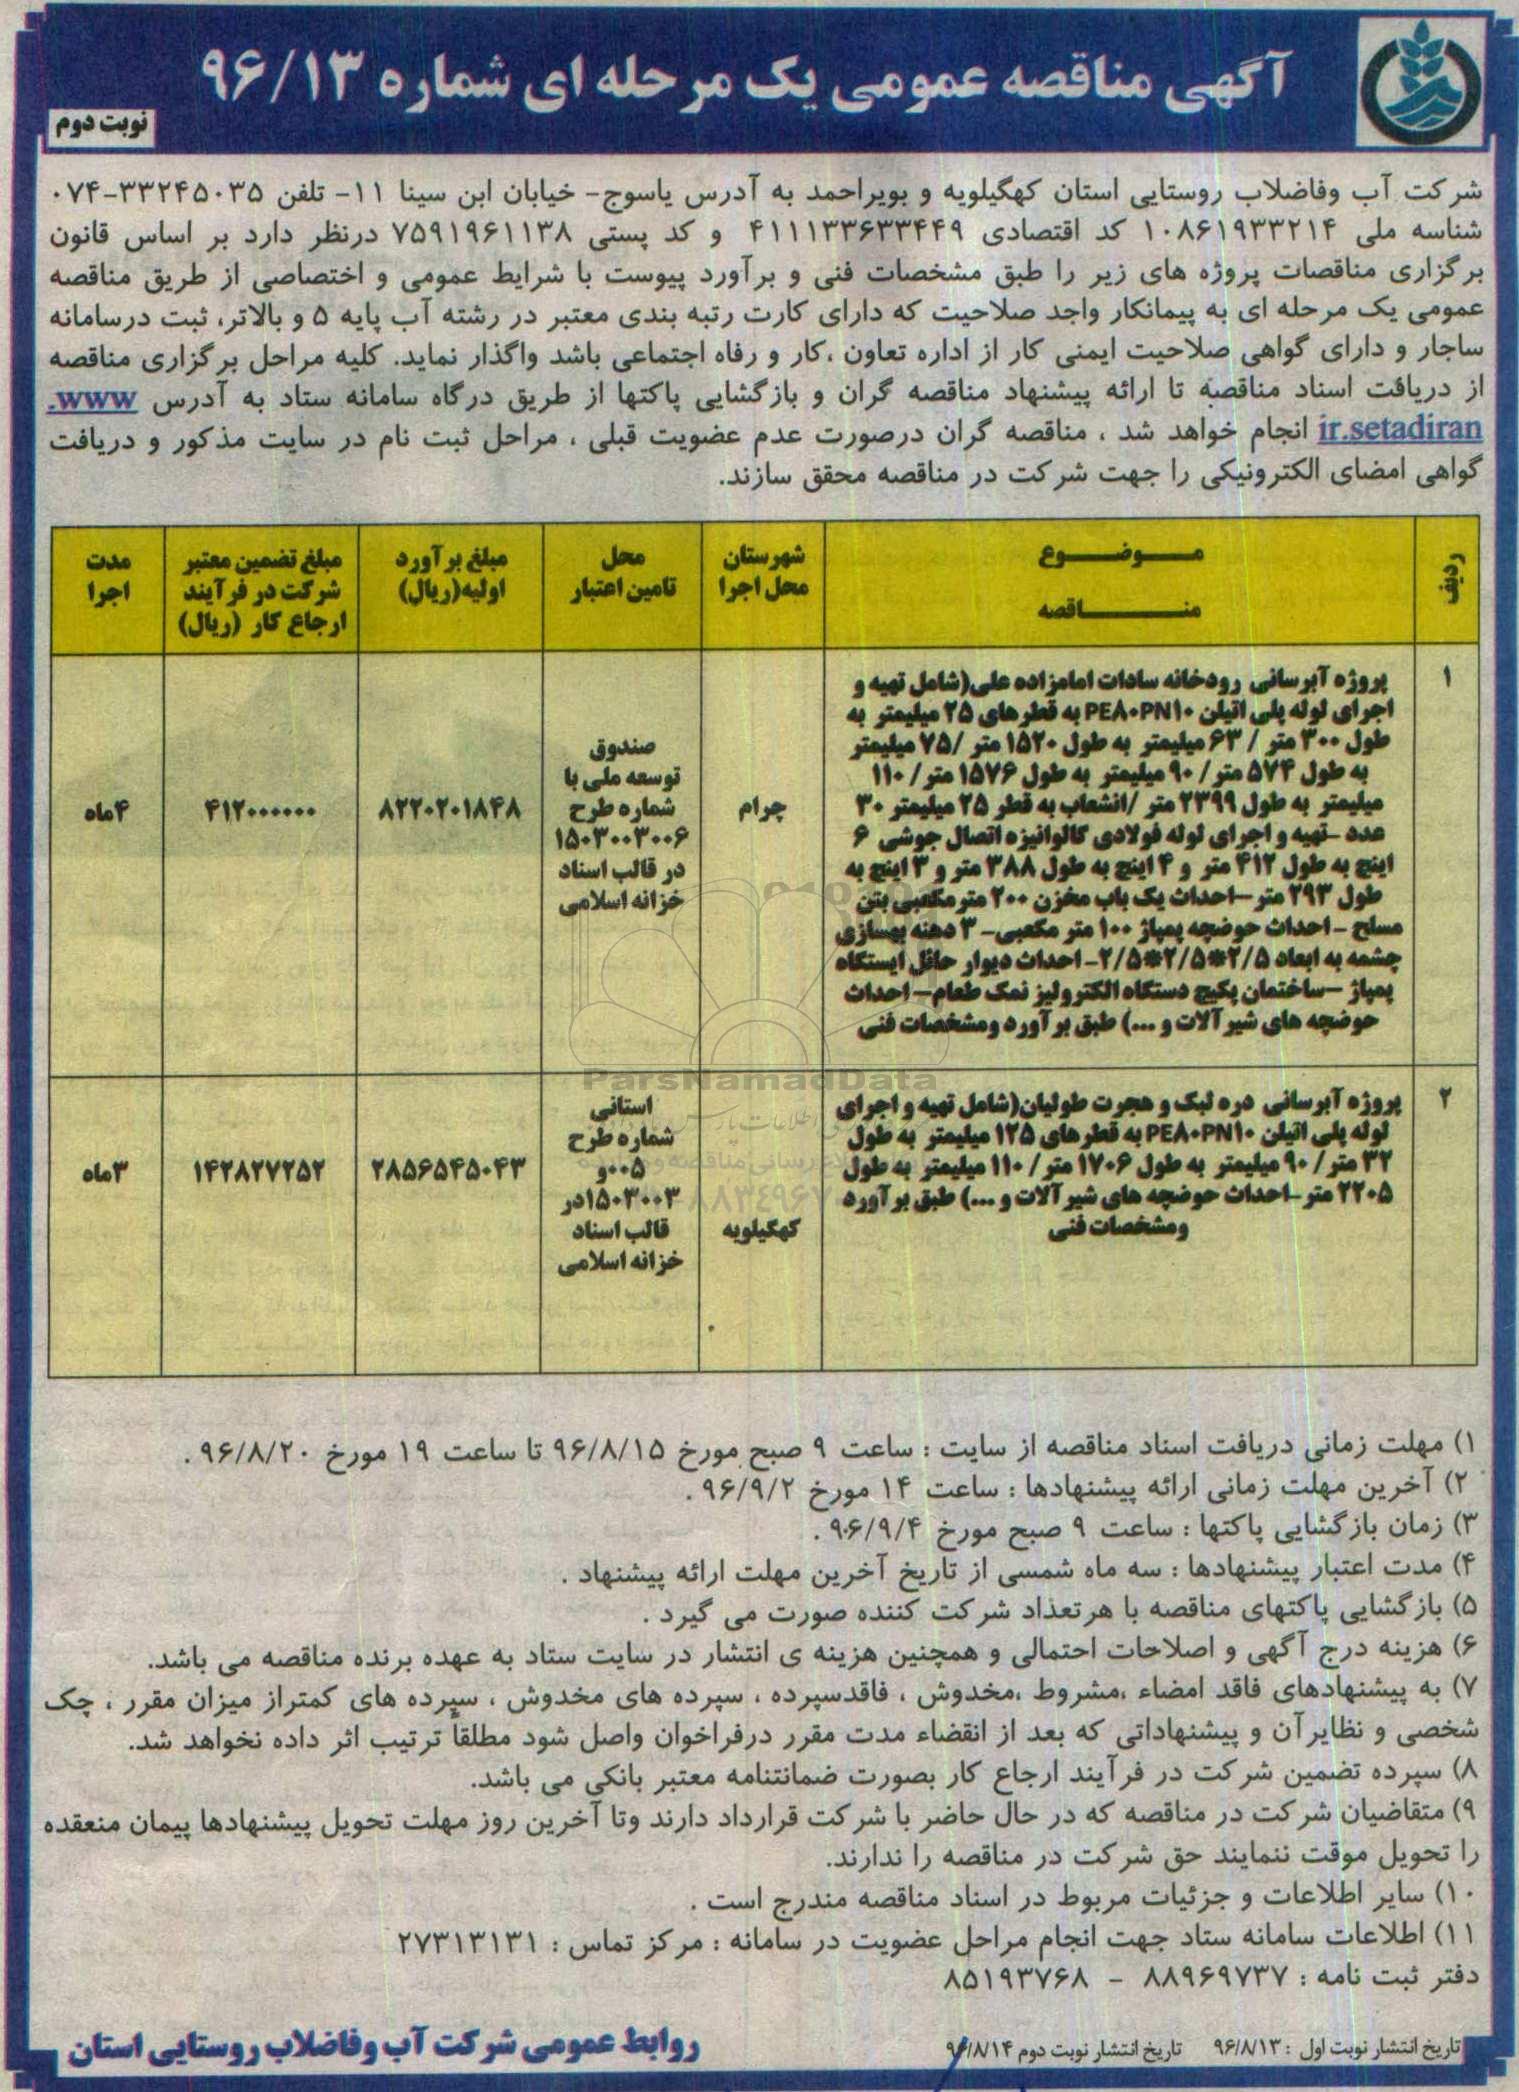 آگهی مناقصه عمومی یک مرحله ای شماره ۹۶/۱۳
نوبت دوم
شرکت آب وفاضلاب روستایی استان کهگیلویه و بویراحمد به آدرس یاسوج- خیابان ابن سینا ۱۱- تلفن ۳۳۲۴۵۰۳۵-۰۷۴
شناسه ملی ۱۰۸۶۱۹۳۳۲۱۴ کد اقتصادی ۴۱۱۱۳۳۶۳۳۴۴۹ و کد پستی ۷۵۹۱۹۶۱۱۳۸ درنظر دارد بر اساس قانون
برگزاری مناقصات پروژه های زیر را طبق مشخصات فنی و برآورد پیوست با شرایط عمومی و اختصاصی از طریق مناقصه
عمومی یک مرحله ای به پیمانکار واجد صلاحیت که دارای کارت رتبه بندی معتبر در رشته آب پایه ۵ و بالاتر، ثبت درسامانه
ساجار و دارای گواهی صلاحیت ایمنی کار از اداره تعاون ،کار و رفاه اجتماعی باشد واگذار نماید. کلیه مراحل برگزاری مناقصه
از دریافت اسناد مناقصه تا ارائه پیشنهاد مناقصه گران و بازگشایی پاکتها از طریق درگاه سامانه ستاد به آدرس www.
ir.setadiran انجام خواهد شد ، مناقصه گران درصورت عدم عضویت قبلی ، مراحل ثبت نام در سایت مذکور و دریافت
گواهی امضای الکترونیکی را جهت شرکت در مناقصه محقق سازند.
ردیف
موضوع
مناقصه
شهرستان
محل اجرا
محل
تامین اعتبار
مبلغ برآورد
اولیه(ریال)
مبلغ تضمین معتبر
شرکت در فرآیند
ارجاع کار (ریال)
مدت
اجرا
۱
پروژه آبرسانی رودخانه سادات امامزاده علی(شامل تهیه و
اجرای لوله پلی اتیلن PE۸۰PN۱۰ به قطرهای ۲۵ میلیمتر به
طول ۳۰۰ متر / ۶۳ میلیمتر به طول ۱۵۲۰ متر /۷۵ میلیمتر
به طول ۵۷۴ متر/ ۹۰ میلیمتر به طول ۱۵۷۶ متر/ ۱۱۰
میلیمتر به طول ۲۳۹۹ متر /انشعاب به قطر ۲۵ میلیمتر ۳۰
عدد -تهیه و اجرای لوله فولادی گالوانیزه اتصال جوشی ۶
اینچ به طول ۴۱۲ متر و ۴ اینچ به طول ۳۸۸ متر و ۳ اینچ به
طول ۲۹۳ متر-احداث یک باب مخزن ۲۰۰ مترمکعبی بتن
مسلح - احداث حوضچه پمپاژ ۱۰۰ متر مکعبی- ۳ دهنه بهسازی
چشمه به ابعاد ۲/۵*۲/۵*۲/۵- احداث دیوار حائل ایستگاه
پمپاژ -ساختمان پکیج دستگاه الکترولیز نمک طعام- احداث
حوضچه های شیرآلات و ...) طبق برآورد ومشخصات فنی
چرام
صندوق
توسعه ملی با
شماره طرح
۱۵۰۳۰۰۳۰۰۶
در قالب اسناد
خزانه اسلامی
۸۲۲۰۲۰۱۸۴۸
۴۱۲۰۰۰۰۰۰
۴ماه
۲
پروژه آبرسانی دره لبک و هجرت طولیان(شامل تهیه و اجرای
لوله پلی اتیلن PE۸۰PN۱۰ به قطرهای ۱۲۵ میلیمتر به طول
۳۲ متر/ ۹۰ میلیمتر به طول ۱۷۰۶ متر/ ۱۱۰ میلیمتر به طول
۲۲۰۵ متر-احداث حوضچه های شیرآلات و ...) طبق برآورد
ومشخصات فنی
کهگیلویه
استانی
شماره طرح
۰۰۵و
۱۵۰۳۰۰۳در
قالب اسناد
خزانه اسلامی
۲۸۵۶۵۴۵۰۴۳
۱۴۲۸۲۷۲۵۲
۳ماه
ParsNamadData
۱) مهلت زمانی دریافت اسناد مناقصه از سایت : ساعت ۹ صبح مورخ ۹۶/۸/۱۵ تا ساعت ۱۹ مورخ ۹۶/۸/۲۰ .
۲) آخرین مهلت زمانی ارائه پیشنهادها : ساعت ۱۴ مورخ ۹۶/۹/۲ .
۳) زمان بازگشایی پاکتها : ساعت ۹ صبح مورخ ۹۶/۹/۴ .
۴) مدت اعتبار پیشنهادها : سه ماه شمسی از تاریخ آخرین مهلت ارائه پیشنهاد .
۵) بازگشایی پاکتهای مناقصه با هرتعداد شرکت کننده صورت می گیرد .
۶) هزینه درج آگهی و اصلاحات احتمالی و همچنین هزینه ی انتشار در سایت ستاد به عهده برنده مناقصه می باشد.
۷) به پیشنهادهای فاقد امضاء ،مشروط ،مخدوش ، فاقدسپرده ، سپرده های مخدوش ، سپرده های کمتراز میزان مقرر ، چک
شخصی و نظایرآن و پیشنهاداتی که بعد از انقضاء مدت مقرر درفراخوان واصل شود مطلقاً ترتیب اثر داده نخواهد شد.
۸) سپرده تضمین شرکت در فرآیند ارجاع کار بصورت ضمانتنامه معتبر بانکی می باشد.
۹) متقاضیان شرکت در مناقصه که در حال حاضر با شرکت قرارداد دارند وتا آخرین روز مهلت تحویل پیشنهادها پیمان منعقده
را تحویل موقت ننمایند حق شرکت در مناقصه را ندارند.
۱۰) سایر اطلاعات و جزئیات مربوط در اسناد مناقصه مندرج است .
۱۱) اطلاعات سامانه ستاد جهت انجام مراحل عضویت در سامانه : مرکز تماس : ۲۷۳۱۳۱۳۱
دفتر ثبت نامه : ۸۸۹۶۹۷۳۷ - ۸۵۱۹۳۷۶۸
تاریخ انتشار نوبت اول : ۹۶/۸/۱۳ تاریخ انتشار نوبت دوم ۹۶/۸/۱۴
روابط عمومی شرکت آب وفاضلاب روستایی استان